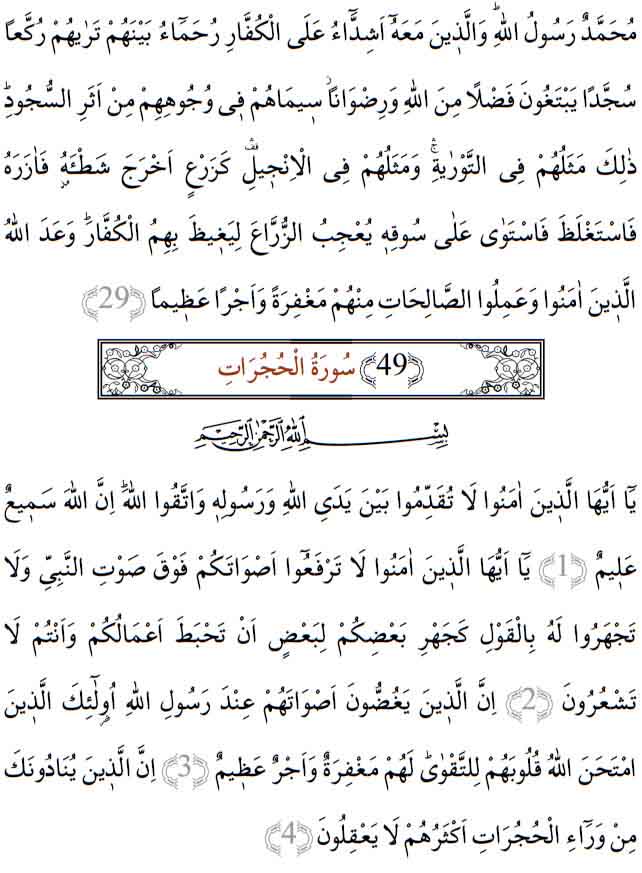 مُحَمَّدٌ رَسُولُ اللّٰهِۜ وَالَّذ۪ينَ مَعَهُٓ اَشِدَّٓاءُ عَلَى الْكُفَّارِ رُحَمَٓاءُ بَيْنَهُمْ تَرٰيهُمْ رُكَّعاً
سُجَّدًا يَبْتَغُونَ فَضْلًا مِنَ اللّٰهِ وَرِضْوَاناًۘ س۪يمَاهُمْ ف۪ي وُجُوهِهِمْ مِنْ اَثَرِ السُّجُودِۜ
ذٰلِكَ مَثَلُهُمْ فِي التَّوْرٰيةِۚ وَمَثَلُهُمْ فِي الْاِنْج۪يلِ۠ كَزَرْعٍ اَخْرَجَ شَطْـَٔهُ۫ فَاٰزَرَهُ
فَاسْتَغْلَظَ فَاسْتَوٰى عَلٰى سُوقِه۪ يُعْجِبُ الزُّرَّاعَ لِيَغ۪يظَ بِهِمُ الْكُفَّارَۜ وَعَدَ اللّٰهُ
الَّذ۪ينَ اٰمَنُوا وَعَمِلُوا الصَّالِحَاتِ مِنْهُمْ مَغْفِرَةً وَاَجْرًا عَظ۪يماً ﴿29﴾
﴿49﴾ سُورَةُ الْحُجُرَاتِ
بِسْمِ اللّٰهِ الرَّحْمٰنِ الرَّح۪يمِ
يَٓا اَيُّهَا الَّذ۪ينَ اٰمَنُوا لَا تُقَدِّمُوا بَيْنَ يَدَيِ اللّٰهِ وَرَسُولِه۪ وَاتَّقُوا اللّٰهَۜ اِنَّ اللّٰهَ سَم۪يعٌ
عَل۪يمٌ ﴿1﴾ يَٓا اَيُّهَا الَّذ۪ينَ اٰمَنُوا لَا تَرْفَعُٓوا اَصْوَاتَكُمْ فَوْقَ صَوْتِ النَّبِيِّ وَلَا
تَجْهَرُوا لَهُ بِالْقَوْلِ كَجَهْرِ بَعْضِكُمْ لِبَعْضٍ اَنْ تَحْبَطَ اَعْمَالُكُمْ وَاَنْتُمْ لَا
تَشْعُرُونَ ﴿2﴾ اِنَّ الَّذ۪ينَ يَغُضُّونَ اَصْوَاتَهُمْ عِنْدَ رَسُولِ اللّٰهِ اُو۬لٰٓئِكَ الَّذ۪ينَ
امْتَحَنَ اللّٰهُ قُلُوبَهُمْ لِلتَّقْوٰىۜ لَهُمْ مَغْفِرَةٌ وَاَجْرٌ عَظ۪يمٌ ﴿3﴾ اِنَّ الَّذ۪ينَ يُنَادُونَكَ
مِنْ وَرَٓاءِ الْحُجُرَاتِ اَكْثَرُهُمْ لَا يَعْقِلُونَ ﴿4﴾